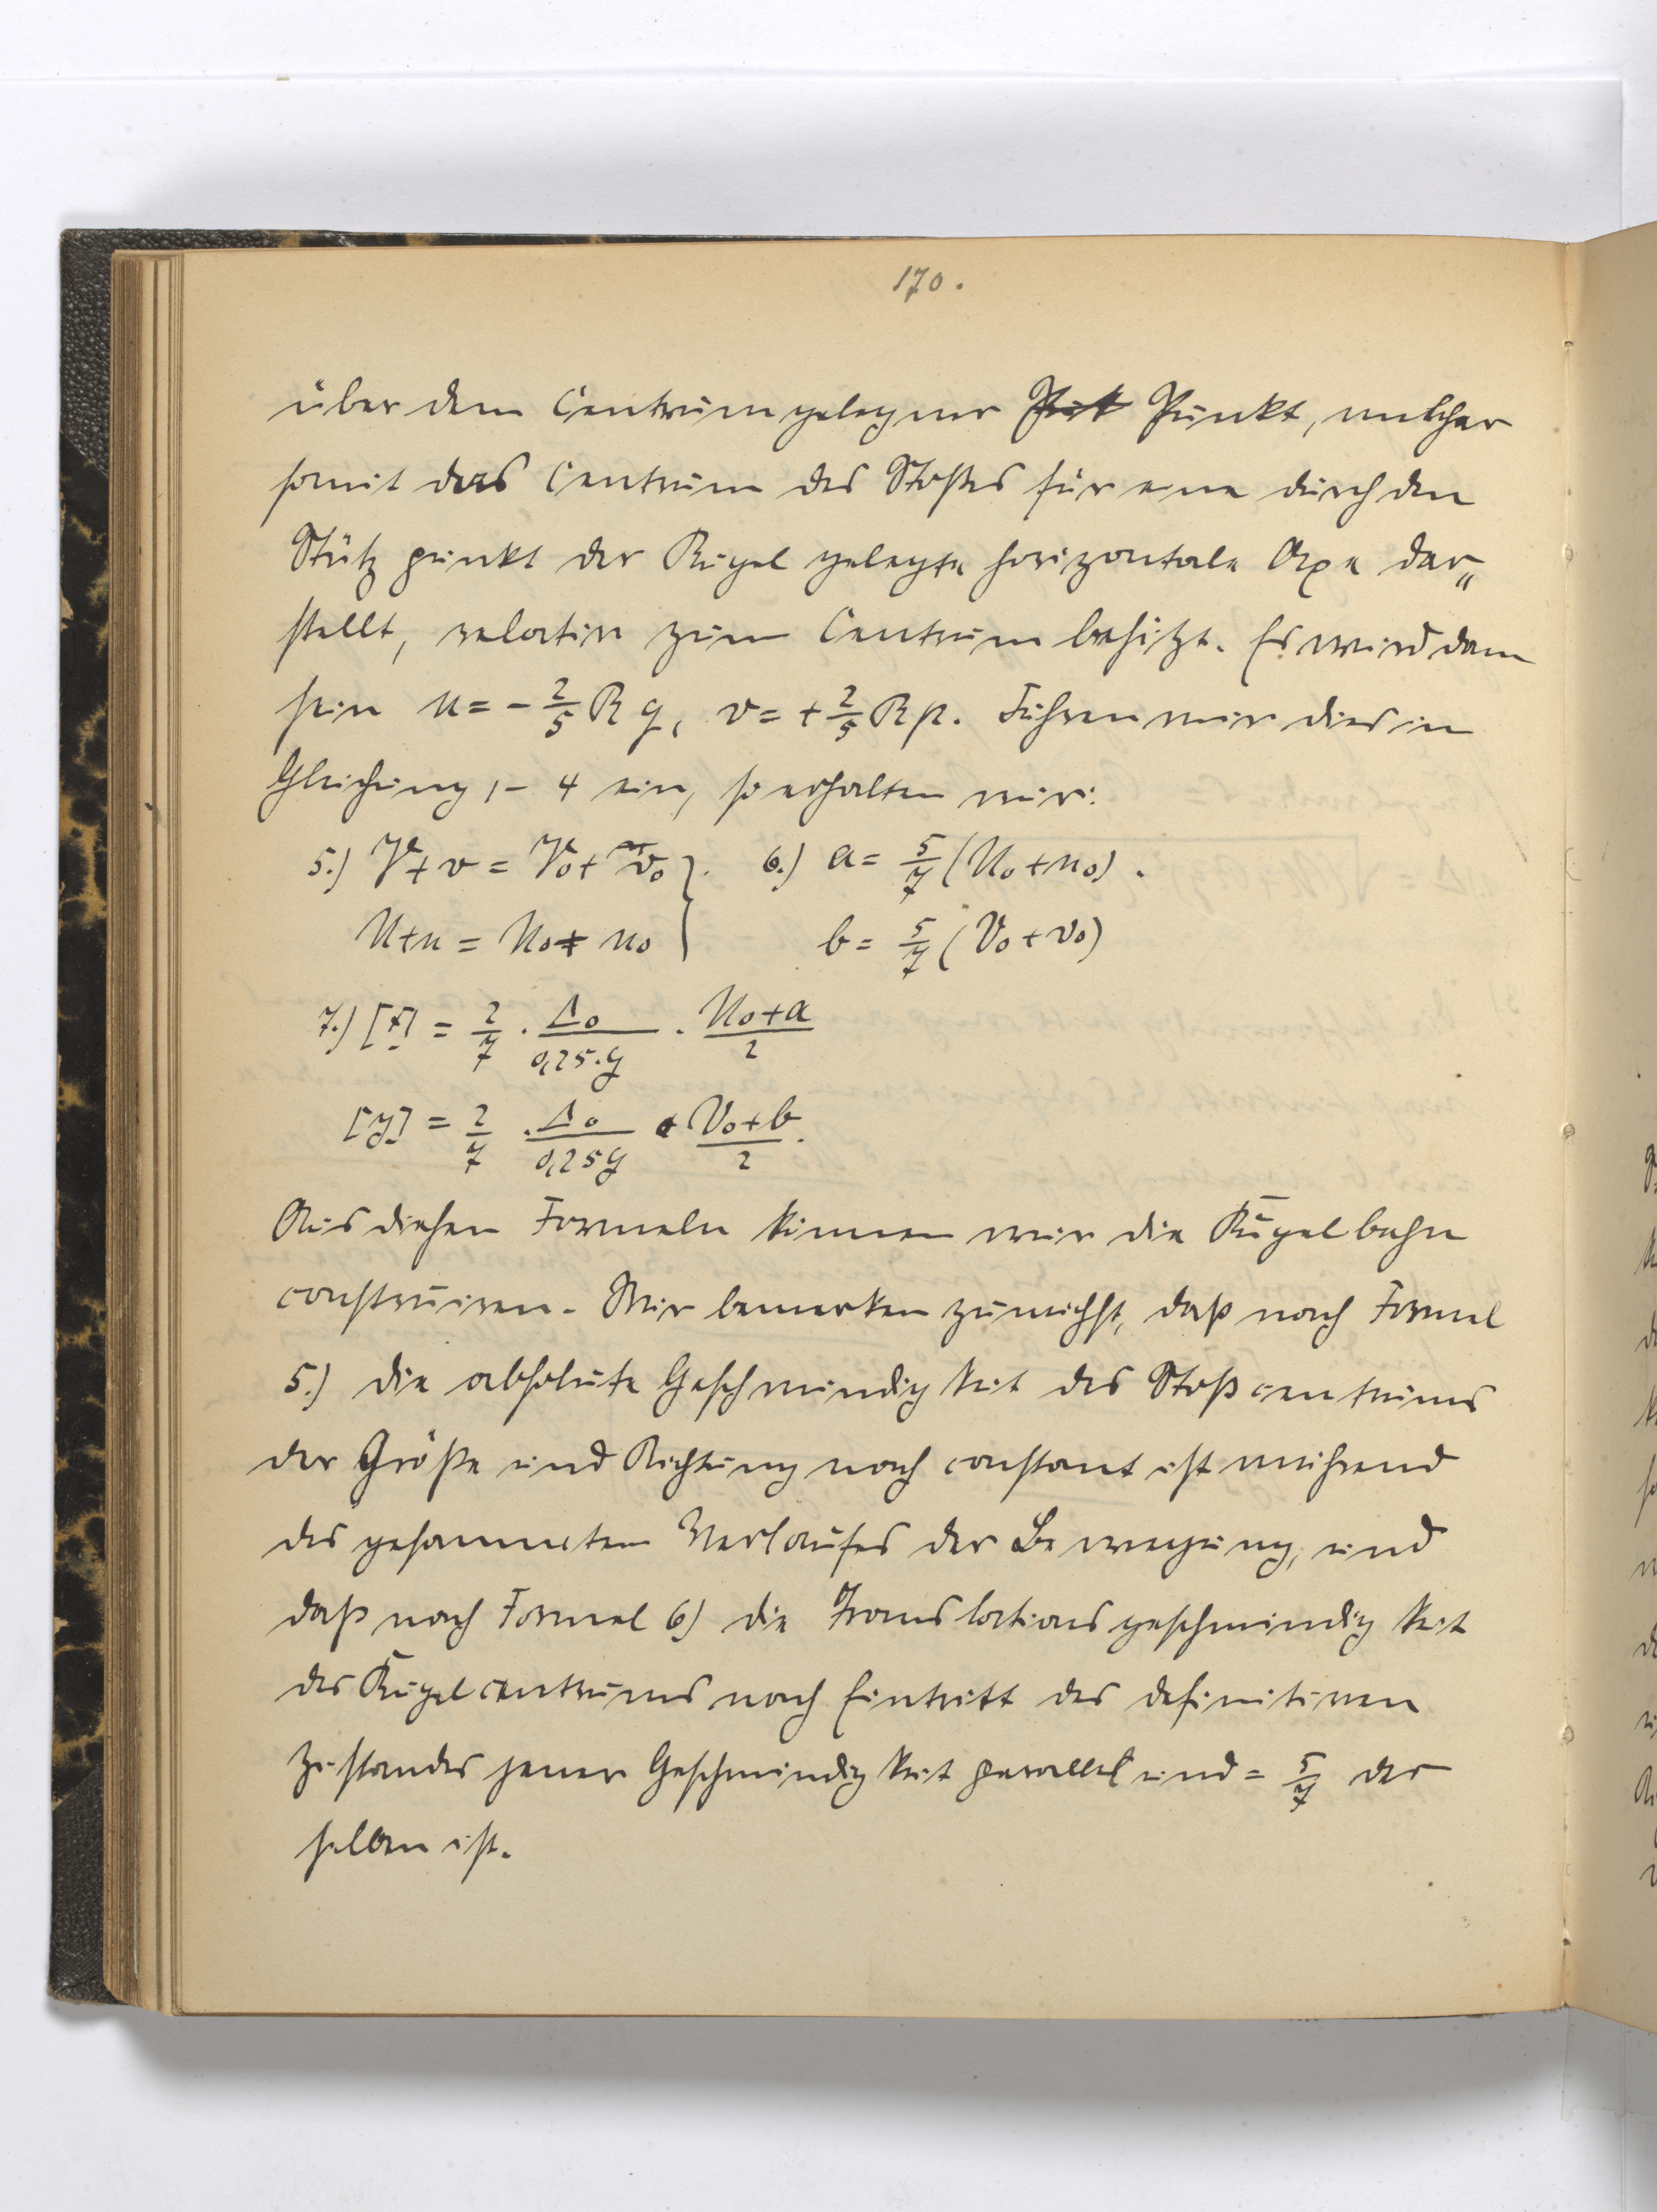 170.
über dem Centrum gelegner Punkt, welcher
somit das Centrum des Stoßes für eine durch den
Stützpunkt der Kugel gelegte horizontale Axe dar„
stellt, relativ zum Centrum besitzt. Es wird dann
sein u = - 2/5 R q, v = + 2/5 R p. Führen wir dies in
Gleichung 1 - 4 ein, so erhalten wir:
5.) V + v = V₀ + v₀ }. 6.) a = 5/7 (U₀ + u₀).
U + u = U₀ + u₀ } b = 5/7 (V₀ + v₀)
7.) [x] = 2/7 . Δ₀/0,25.g . U₀+a/2
[y] = 2/7 . Δ₀/0,25 g . V₀+b/2.
Aus diesen Formeln können wir die Kugelbahn
construiren. Wir bemerken zunächst, daß nach Formel
5.) die absolute Geschwindigkeit des Stoßcentrums
der Größe und Richtung nach constant ist während
des gesammten Verlaufes der Bewegung, und
daß nach Formel 6) die Translationsgeschwindigkeit
des Kugelcentrums nach Eintritt des definitiven
Zustandes jener Geschwindigkeit parallel und = 5/7 der
selben ist.